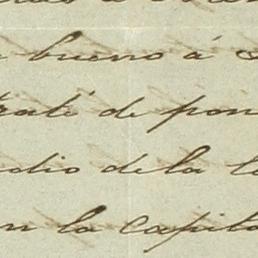 bueno á
traté de pon
dio de la C
en la Capita